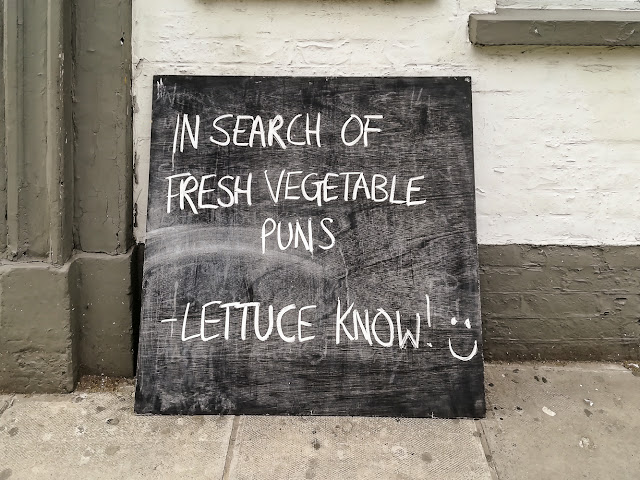 IN SEARCH OF
FRESH VEGETABLE
PUNS
-LETTUCE KNOW! :)